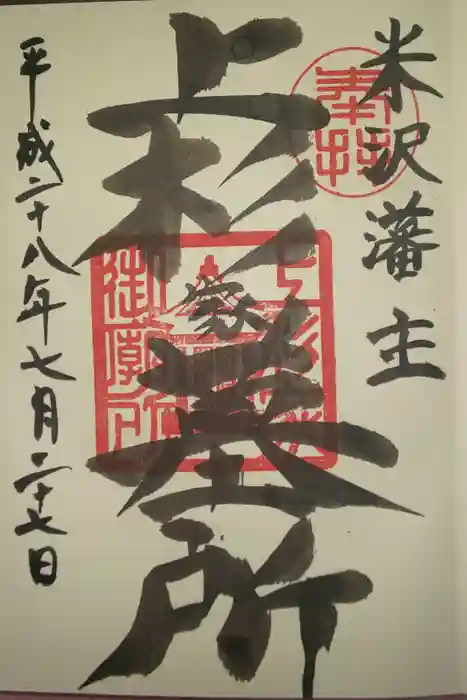 米沢藩主
奉拝
上杉家墓所
御廟所
平成二十八年七月二十七日